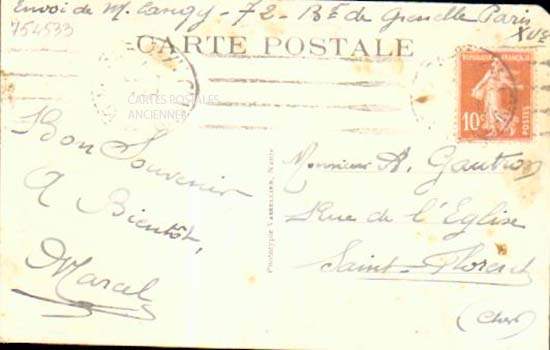 Envoi de M. Cangy - 72 - Bd de Grenelle Paris
XVe
754533
CARTE POSTALE
CARTES POSTALES
ANCIENNES
REPUBLIQUE FRANÇAISE
10c
POSTES
Bon Souvenir
A Bientôt,
Marcel
Phototypie VASSELLIER, Nantes
Monsieur A. Gautron
Rue de l'Eglise
Saint-Florent
(Cher)